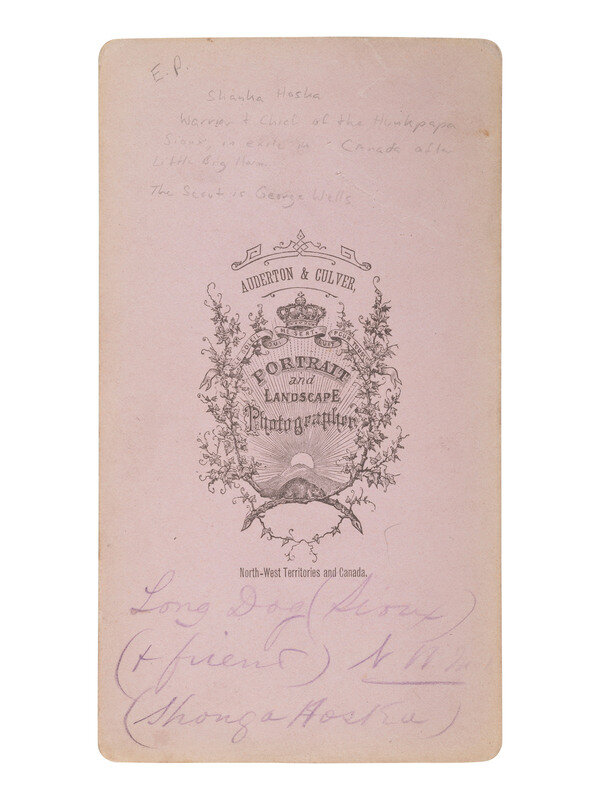 E.P.
Shanka Haska
Warrior + Chief of the Hunkpapa
Sioux, in exile in Canada after
Little Big Horn.
The Scout is George Wells
AUDERTON & CULVER,
PORTRAIT
and
LANDSCAPE
Photographer
North-West Territories and Canada.
Long Dog (Sioux)
(+ friend) N W
(Shonga Hoska)